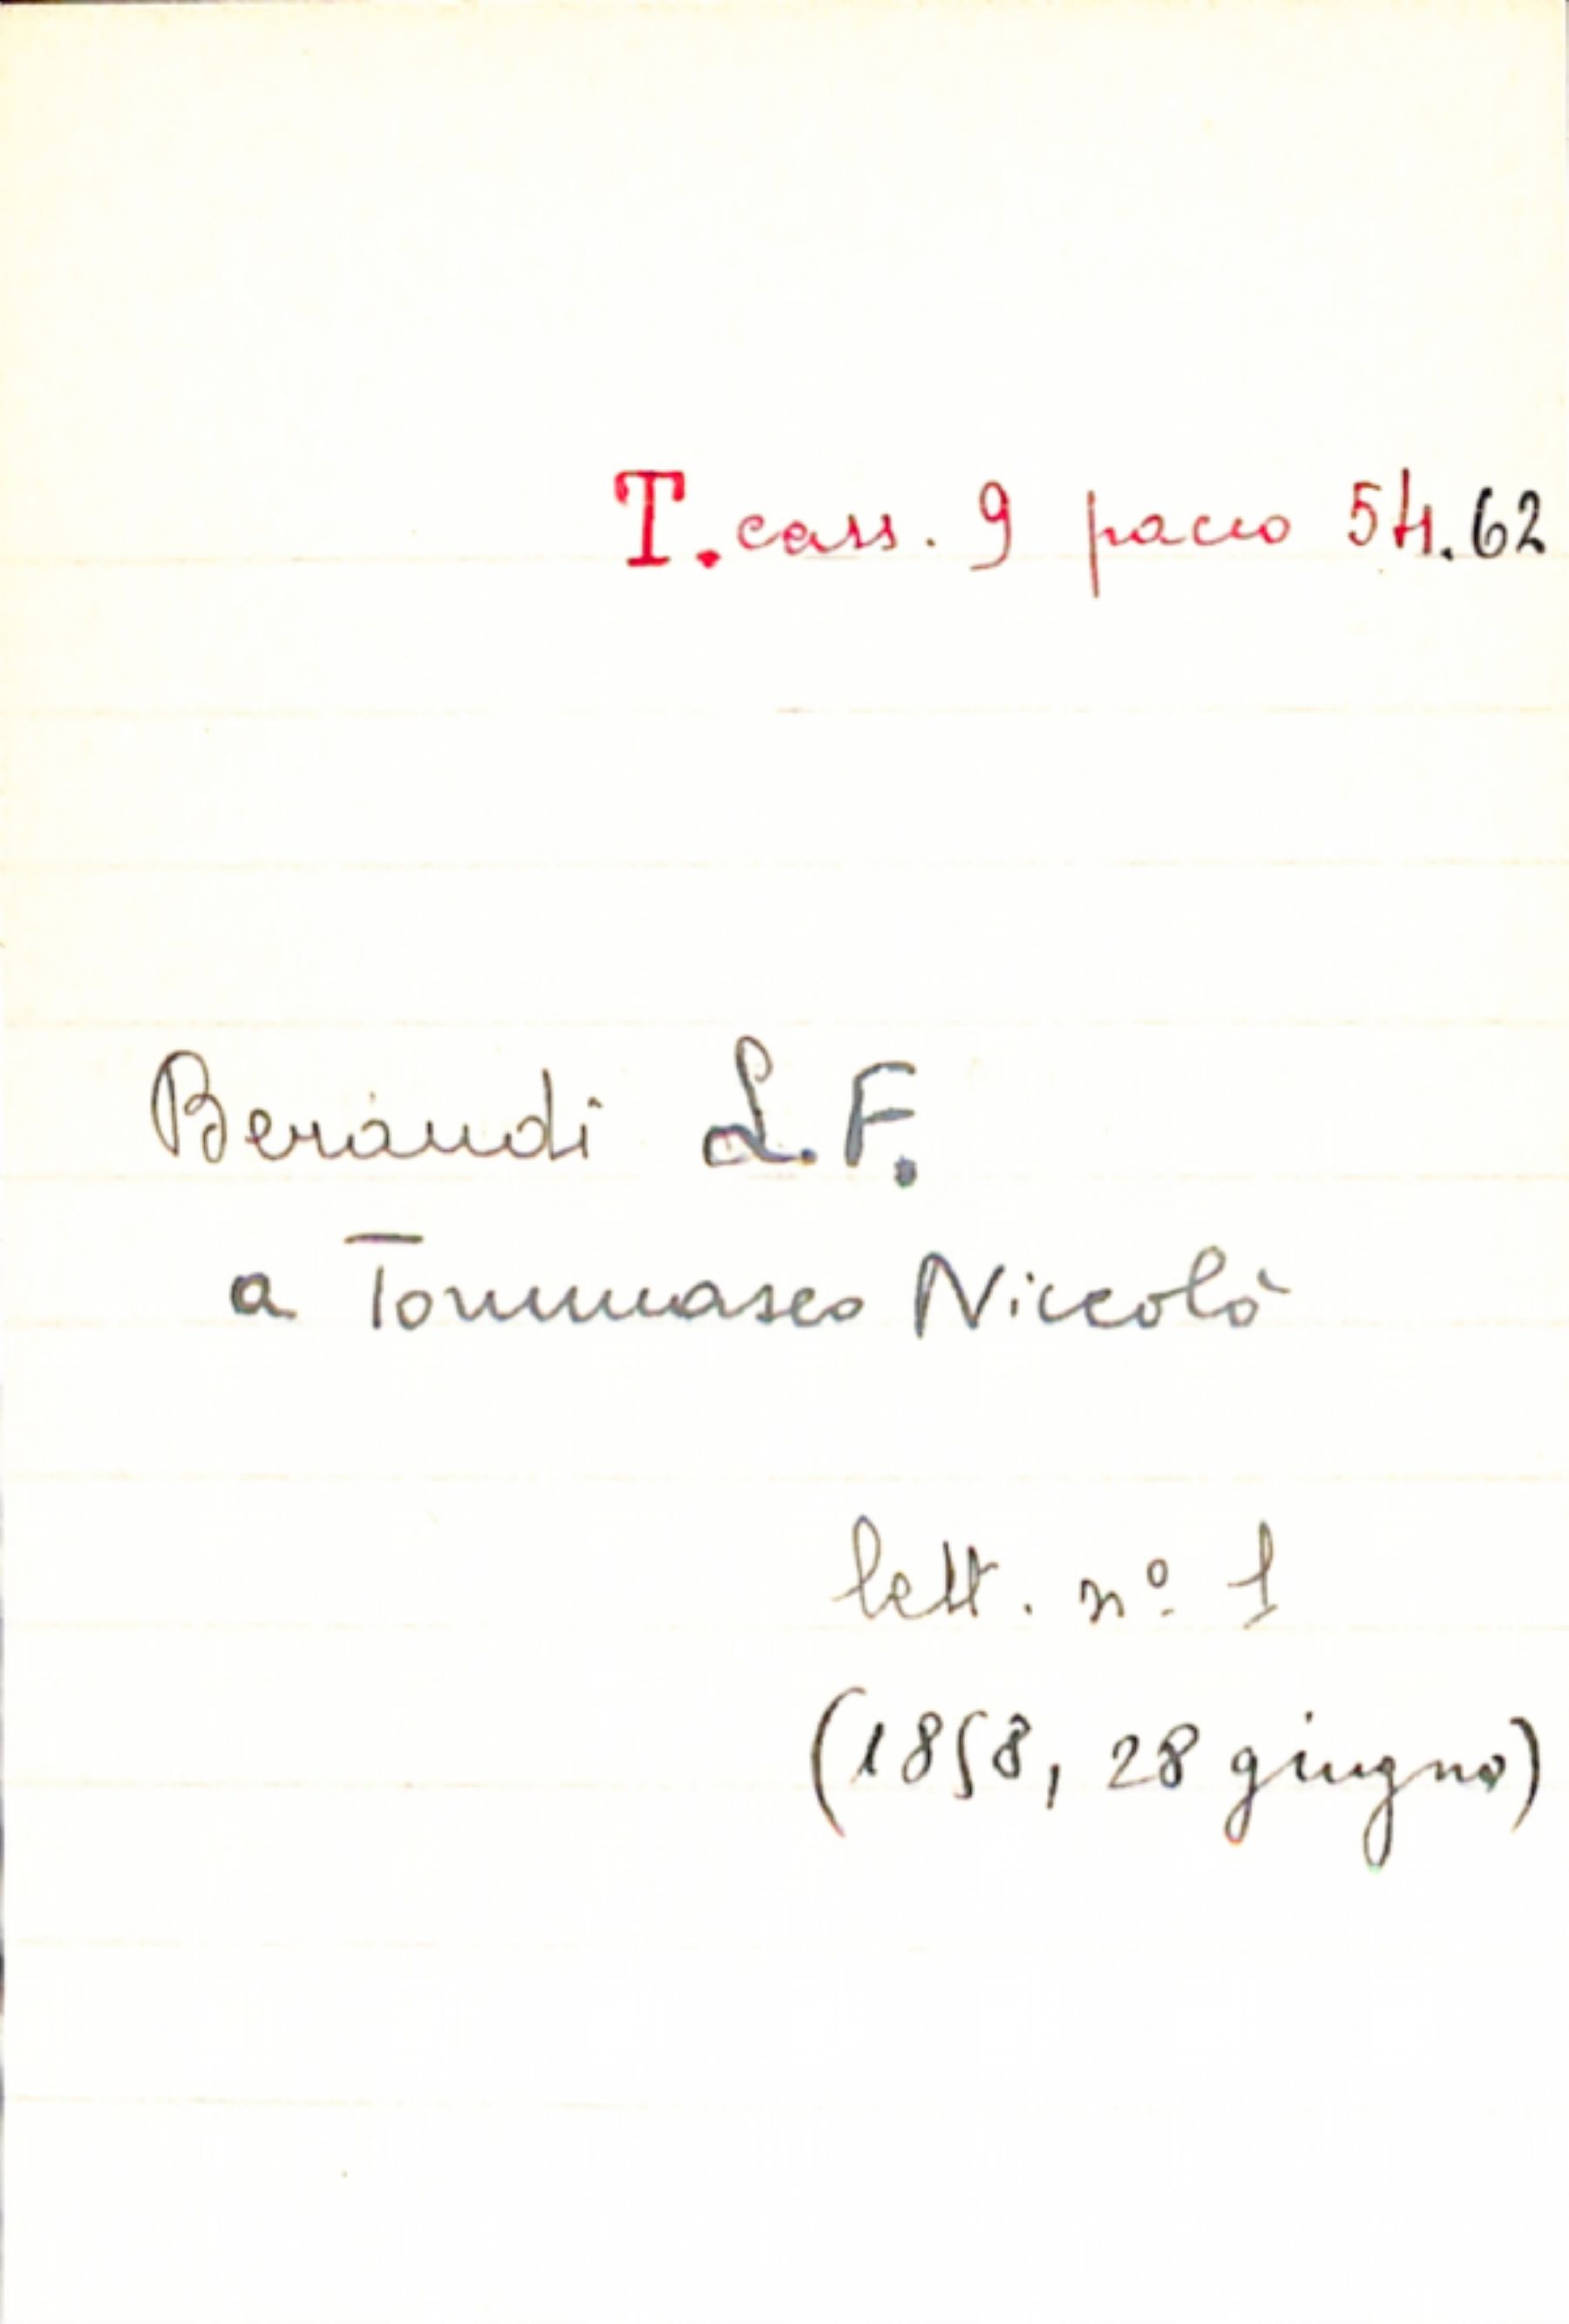 T. cass. 9 pacco 54.62
Beraudi L.F.
a Tommaseo Niccolò
lett. nº 1
(1858, 28 giugno)